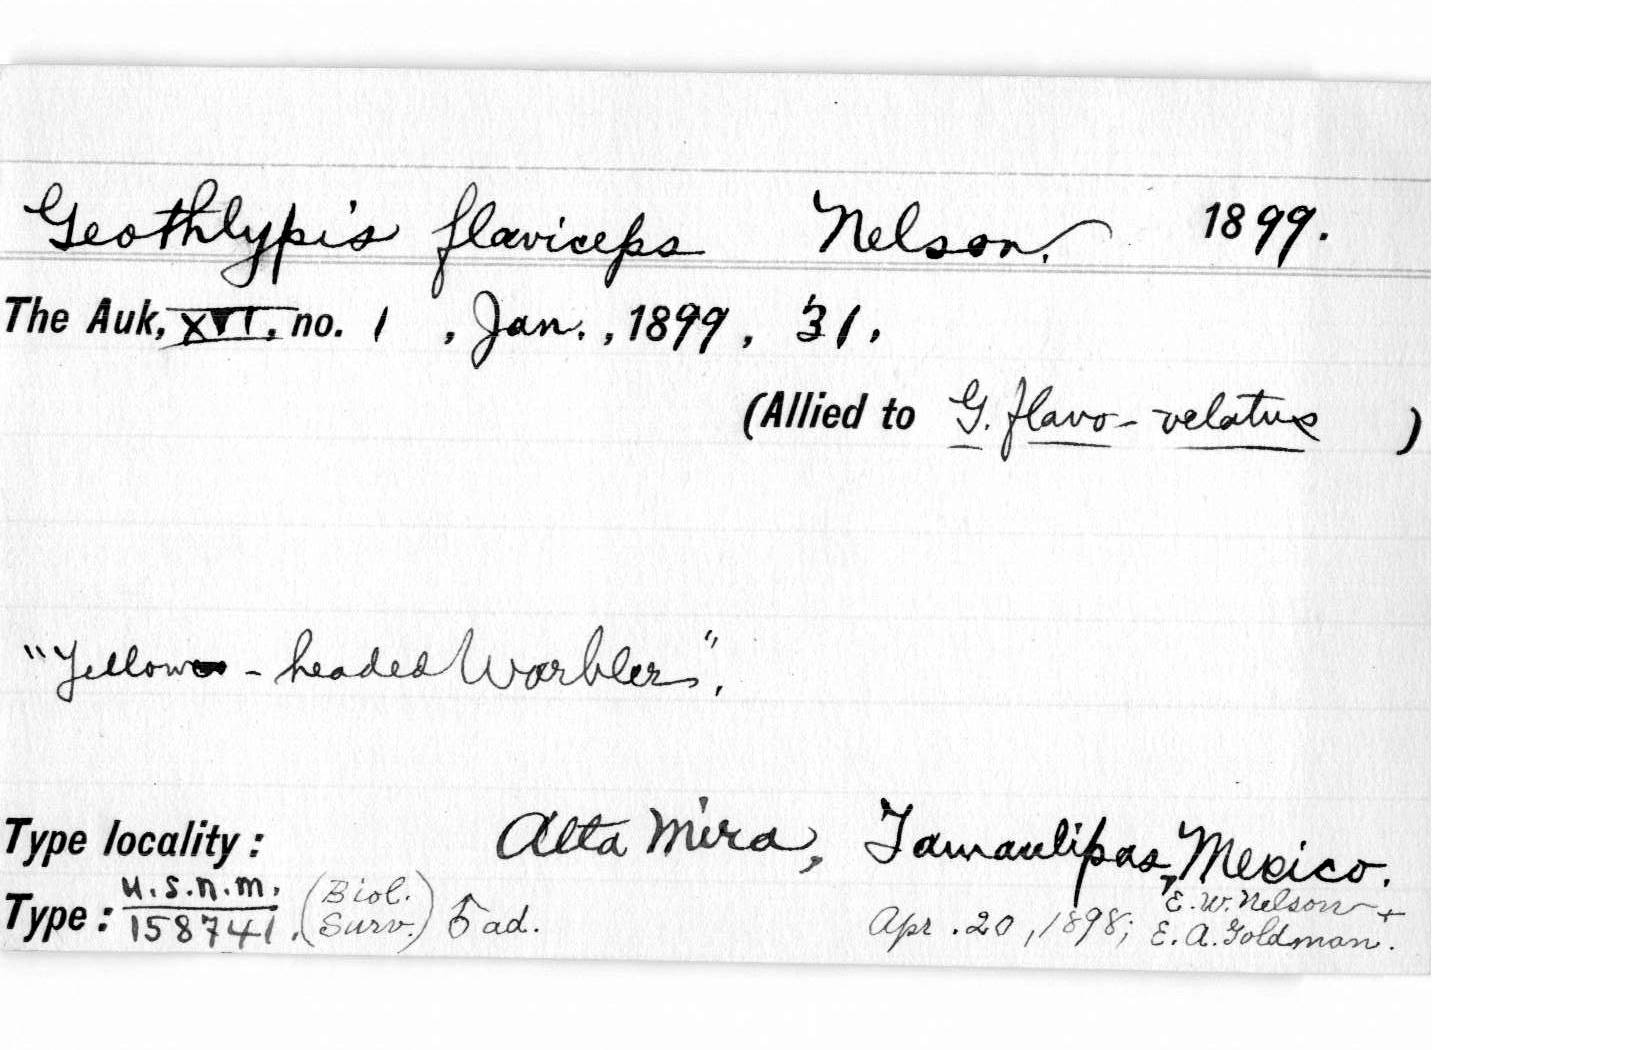 Geothlypis flaviceps Nelson. 1899.
The Auk, XVI, no. 1, Jan., 1899, 31.
(Allied to G. flavo-velatus)
"Yellow-headed Warbler".
Type locality: Alta Mira, Tamaulipas, Mexico.
Type: U.S.N.M. 158741. (Biol. Surv.) ♂ ad. Apr. 20, 1898; E. W. Nelson + E. A. Goldman.